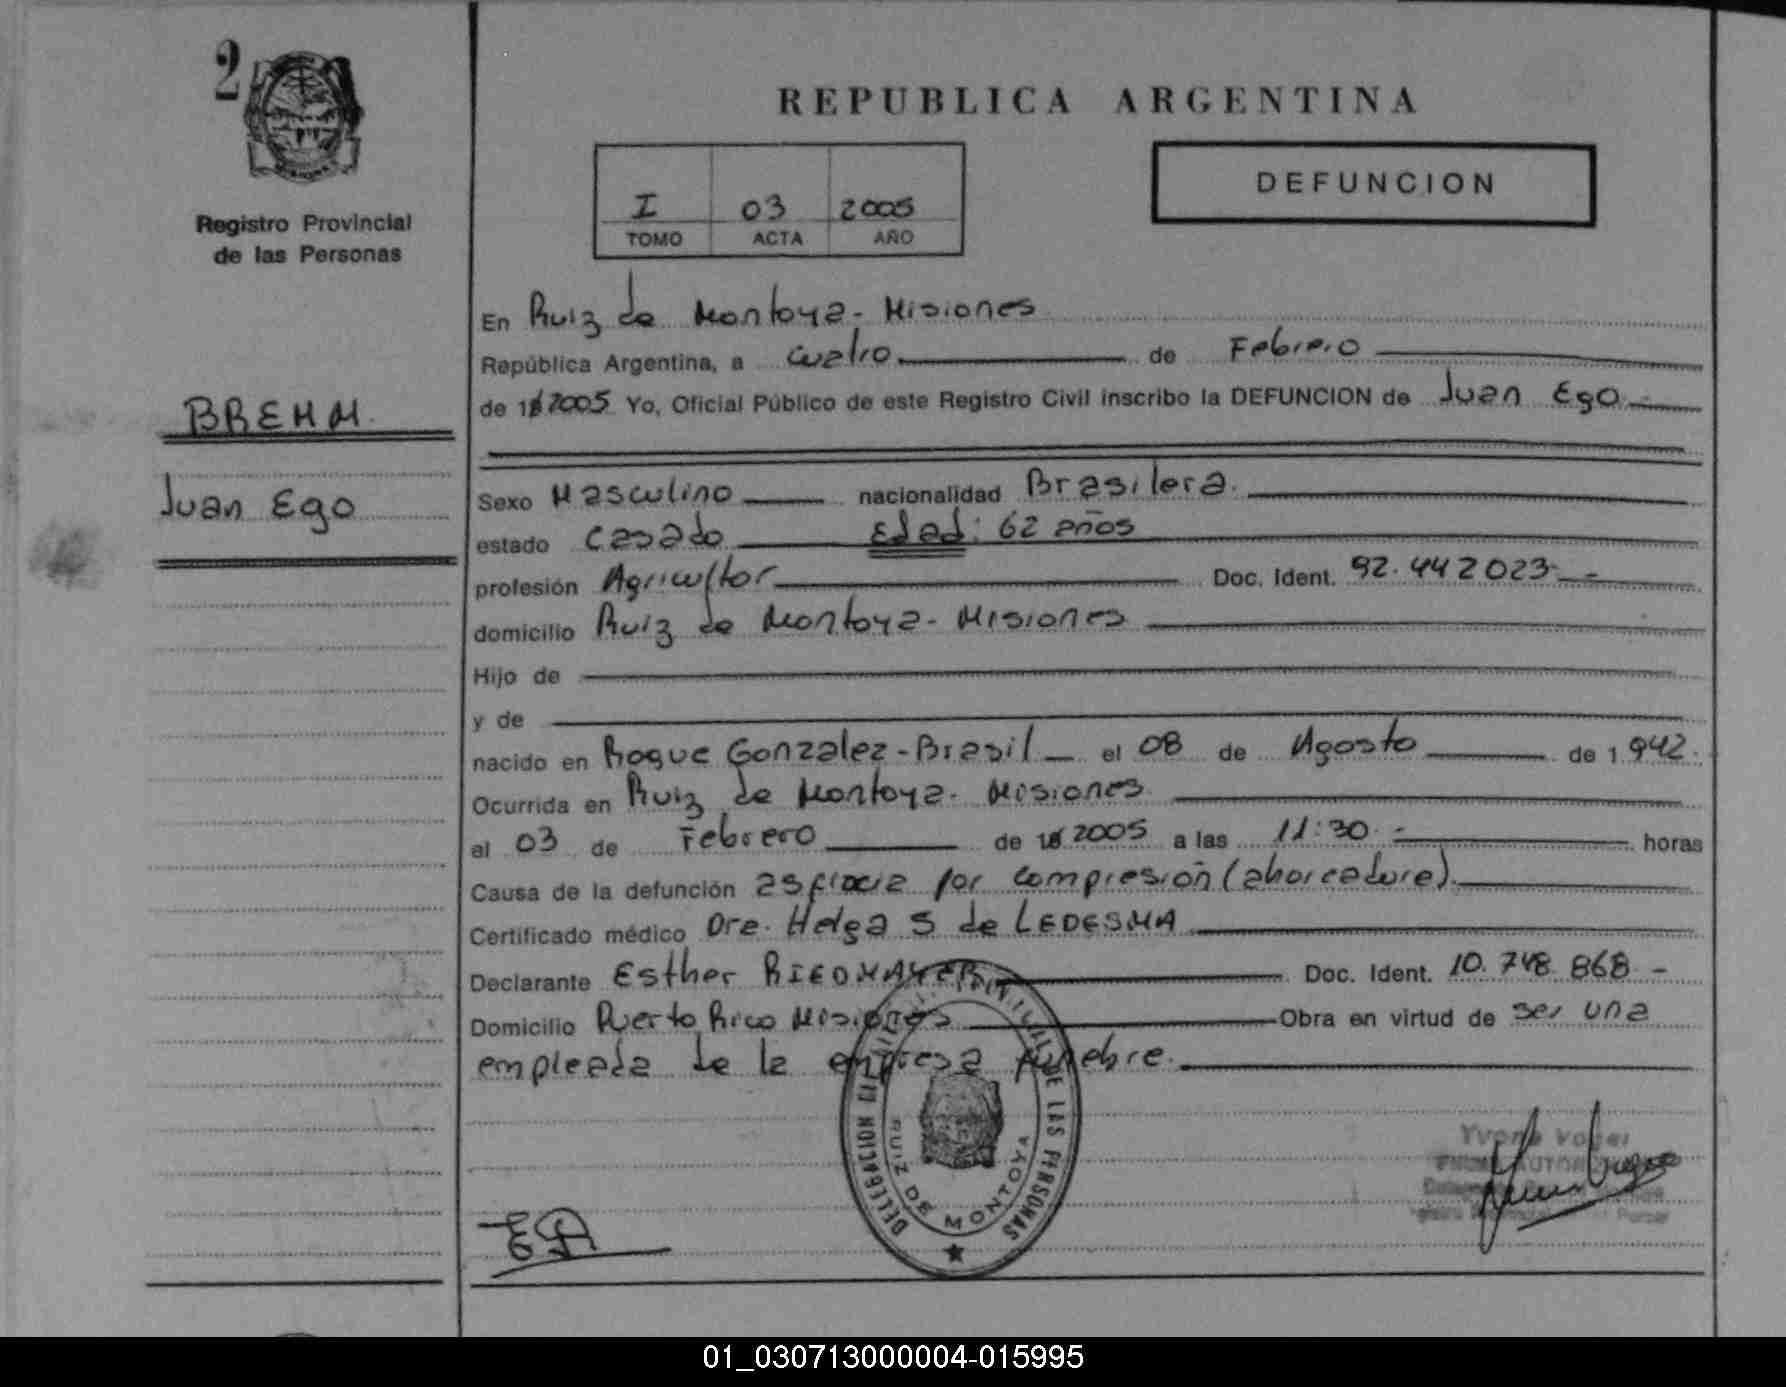 2
Registro Provincial
de las Personas
BREHM.
Juan Ego
REPUBLICA ARGENTINA
I 03 2005
TOMO ACTA AÑO
DEFUNCION
En Ruiz de Montoya - Misiones
República Argentina, a cuatro de Febrero
de 2005 Yo, Oficial Público de este Registro Civil inscribo la DEFUNCION de Juan Ego
Sexo Masculino nacionalidad Brasilera
estado Casado Edad: 62 años
profesión Agricultor Doc. Ident. 92.442023
domicilio Ruiz de Montoya - Misiones
Hijo de
y de
nacido en Roque Gonzalez - Brasil el 08 de Agosto de 1.942.
Ocurrida en Ruiz de Montoya - Misiones
el 03 de Febrero de 2005 a las 11:30 horas
Causa de la defunción asfixia por compresión (ahorcadura).
Certificado médico Dra. Helga S de LEDESMA
Declarante Esther Doc. Ident. 10.748.868 -
Domicilio Puerto Rico Misiones Obra en virtud de ser una
empleada de la empresa fúnebre.
DELEGACION DE LAS PERSONAS
RUIZ DE MONTOYA
01_030713000004-015995